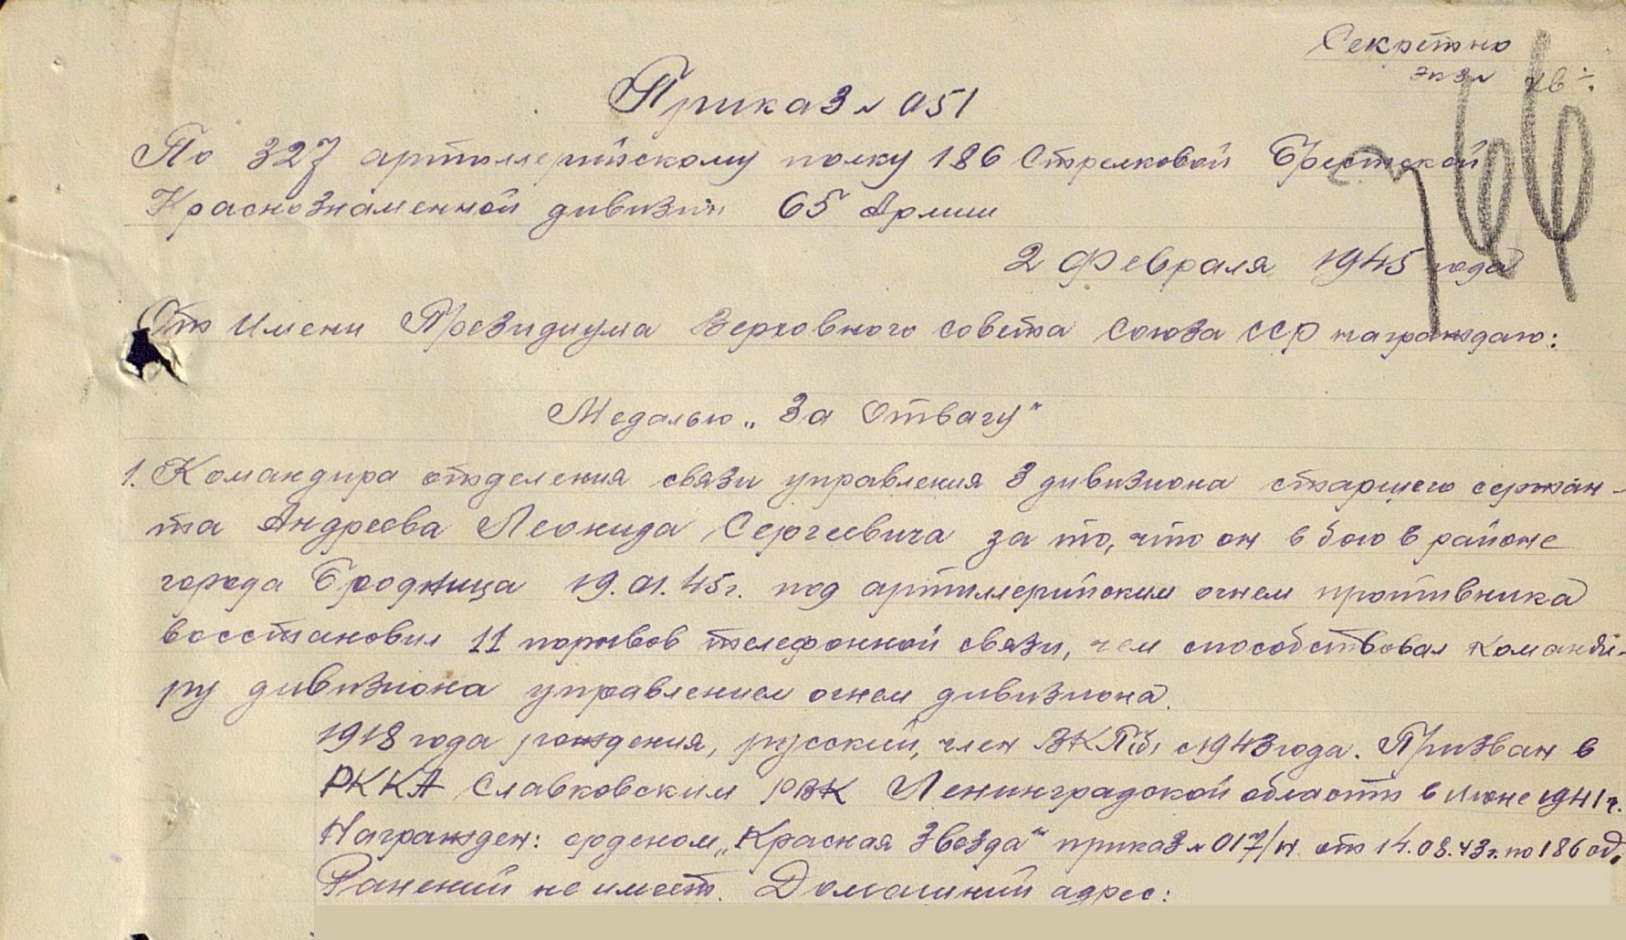 Секретно
экз №
Приказ № 051
По 327 артиллерийскому полку 186 Стрелковой Брестской
Краснознаменной дивизии 65 Армии
2 февраля 1945 года
От имени Президиума Верховного совета Союза ССР награждаю:
Медалью „За Отвагу“
1. Командира отделения связи управления 3 дивизиона старшего сержан-
та Андреева Леонида Сергеевича за то, что он в бою в районе
города Бродница 19.01.45г. под артиллерийским огнем противника
восстановил 11 порывов телефонной связи, чем способствовал команди-
ру дивизиона управлением огнем дивизиона.
1918 года рождения, русский, член ВКПб, с 1943 года. Призван в
РККА Славковским РВК Ленинградской области в Июне 1941 г.
Награжден: орденом „Красная Звезда“ приказ № 017/н от 14.08.43г. по 186 сд.
Ранений не имеет. Домашний адрес: